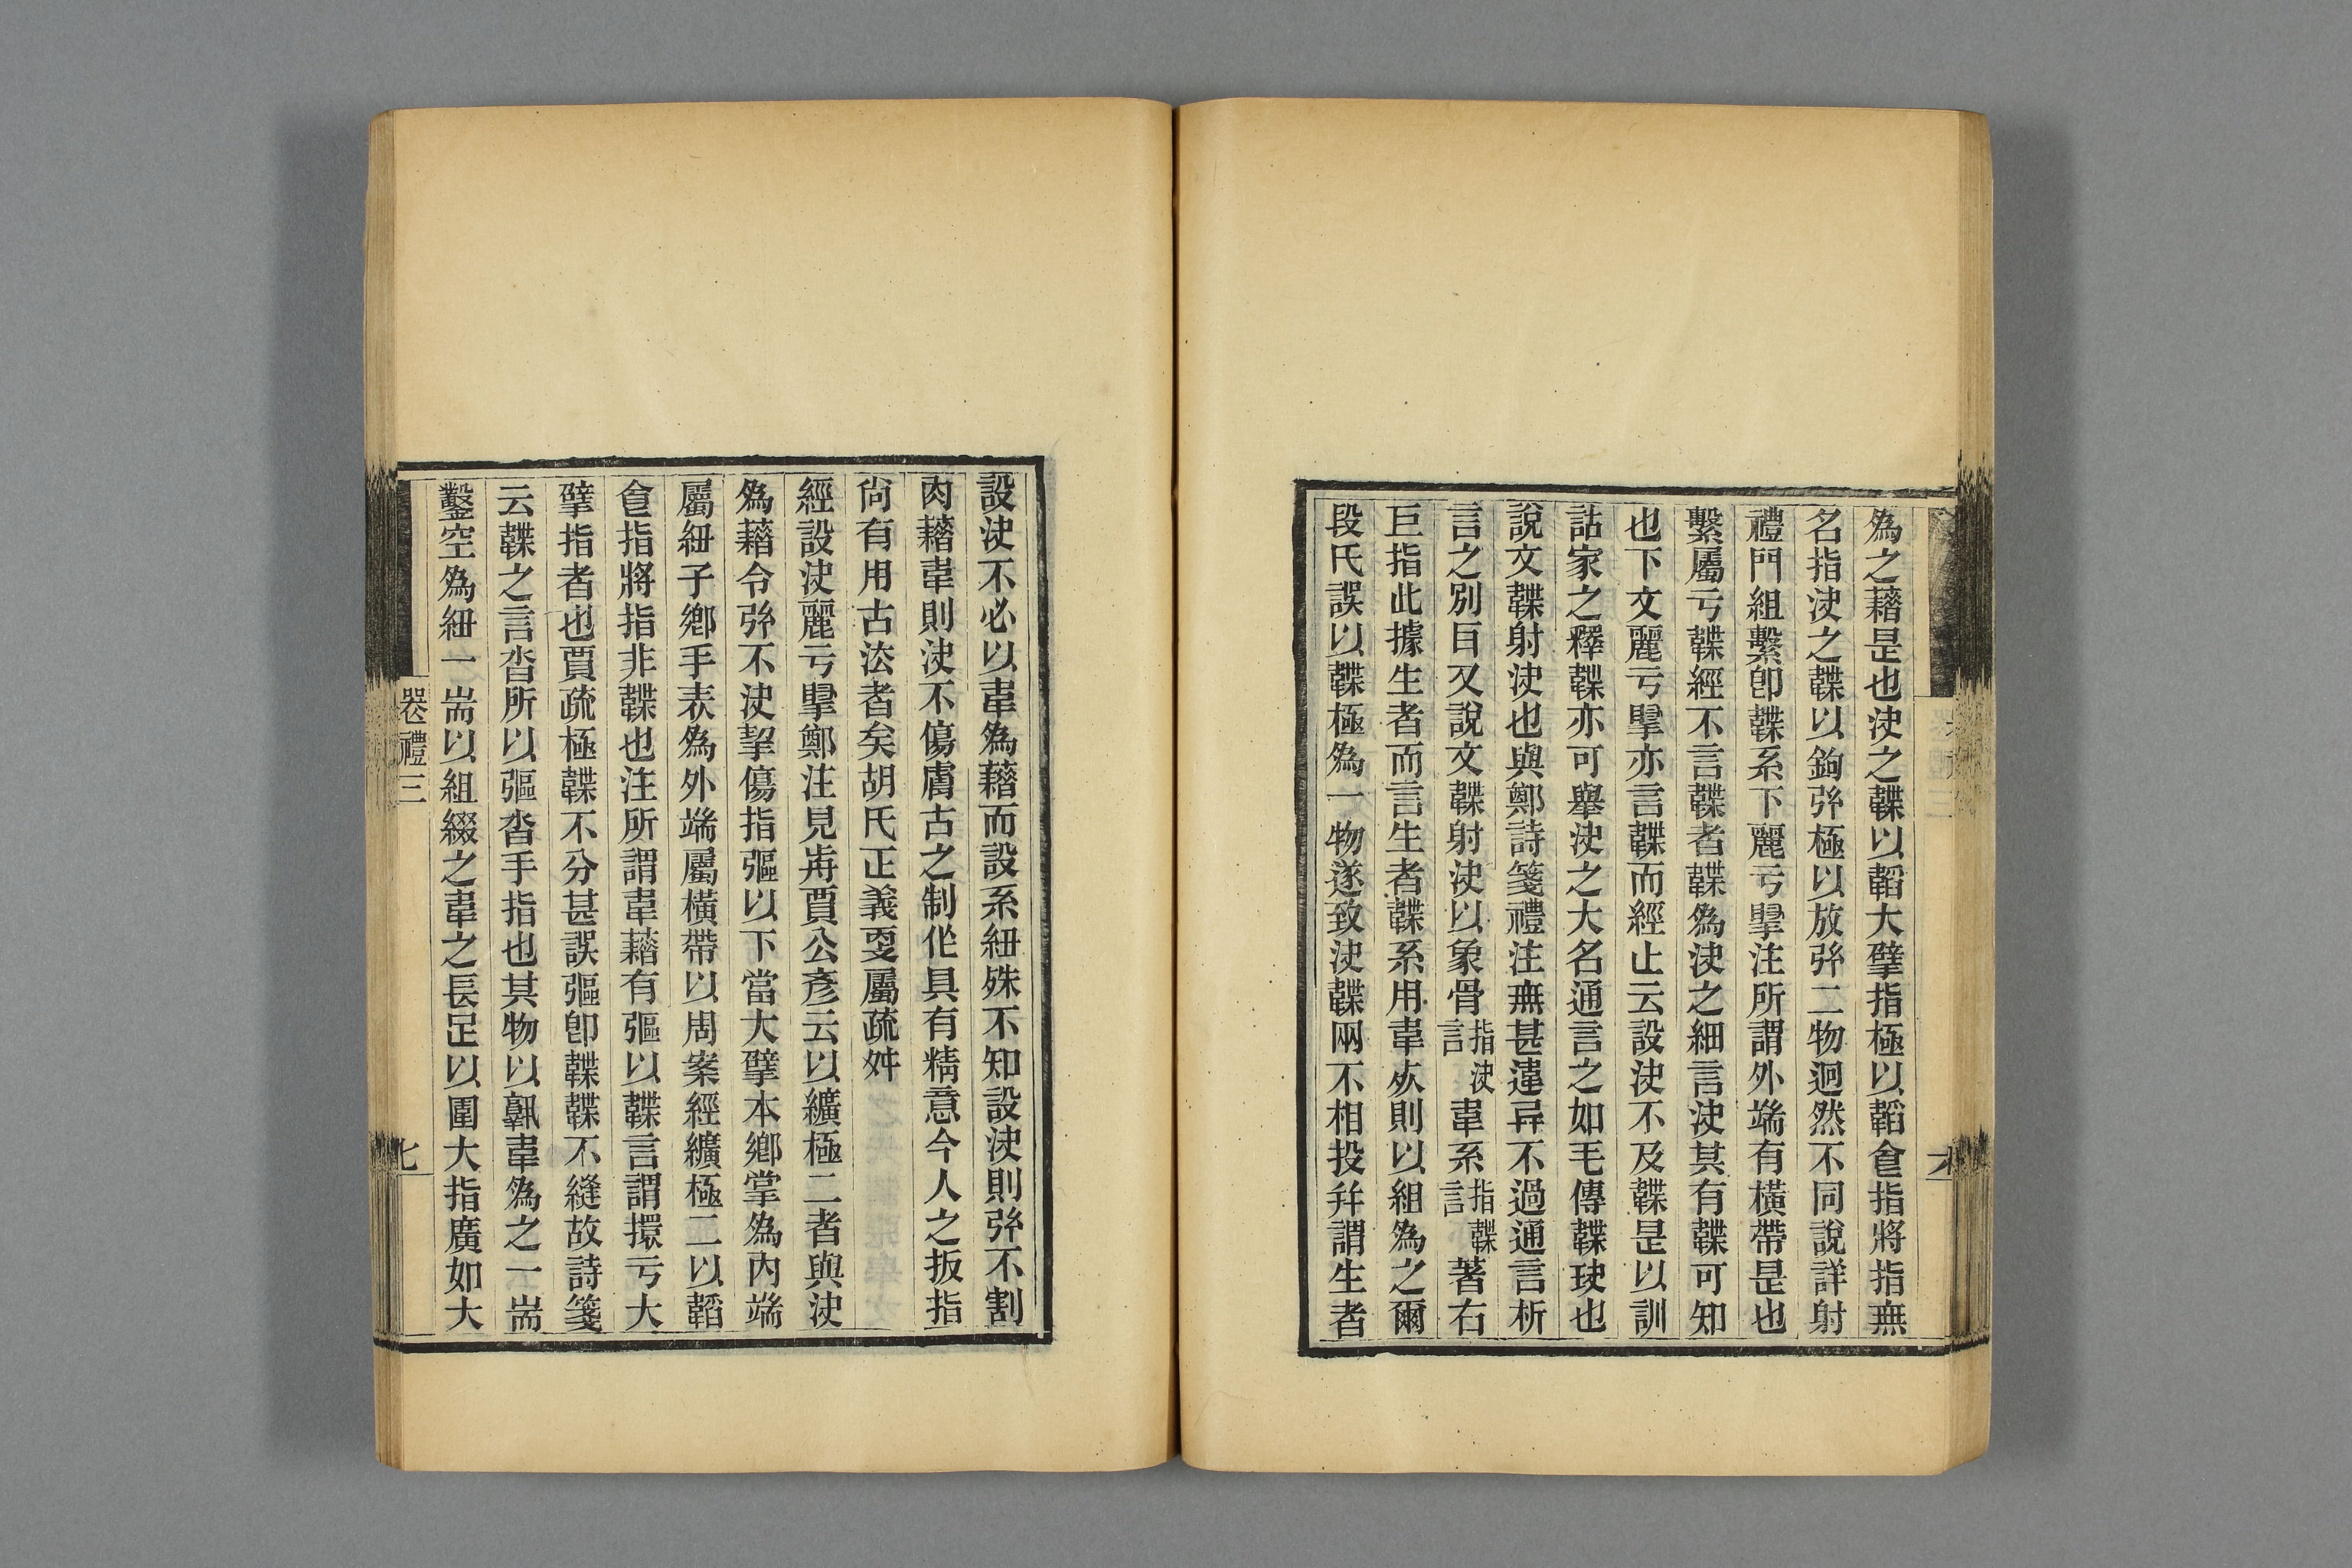 為之藉是也決之韘以韜大擘指極以韜食指將指無
名指決之韘以鉤弦極以放弦二物迥然不同說詳射
禮門組繫卽韘系下麗亏掔注所謂外端有橫帶是也
繫屬亏韘經不言韘者韘為決之細言決其有韘可知
也下文麗亏掔亦言韘而經止云設決不及韘是以訓
詁家之釋韘亦可舉決之大名通言之如毛傳韘玦也
說文韘射決也與鄭詩箋禮注無甚違异不過通言析
言之別㠯又說文韘射決以象骨指決言韋系指韘言著右
巨指此據生者而言生者韘系用韋𣦸則以組為之爾
段氏誤以韘極為一物遂致決韘兩不相投幷謂生者
設決不必以韋為藉而設系紐殊不知設決則弦不割
肉藉韋則決不傷膚古之制作具有精意今人之扳指
尚有用古法者矣胡氏正義更屬疏舛
經設決麗亏掔鄭注見歬賈公彥云以纊極二者與決
為藉令弦不決挈傷指彄以下當大擘本鄉掌為內端
屬紐子鄉手表為外端屬橫帶以周案經纊極二以韜
食指將指非韘也注所謂韋藉有彄以韘言謂擐亏大
擘指者也賈疏極韘不分甚誤彄卽韘韘不縫故詩箋
云韘之言沓所以彄沓手指也其物以孰韋為之一耑
鑿空為紐一耑以組綴之韋之長足以圍大指廣如大
卷禮三
七